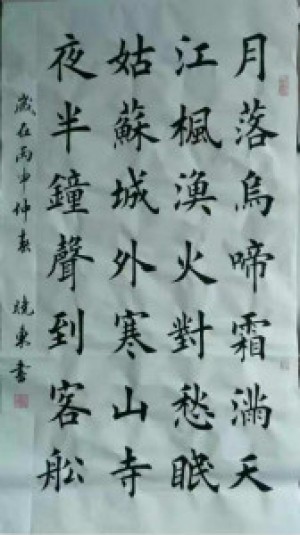 月落烏啼霜滿天
江楓漁火對愁眠
姑蘇城外寒山寺
夜半鐘聲到客船
歲在丙申仲春 曉東書